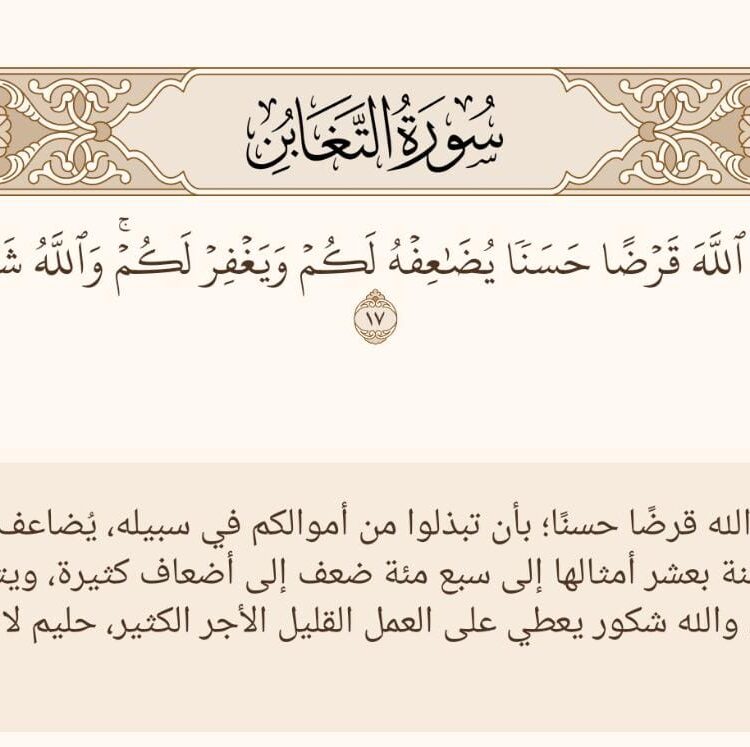 سُورَةُ التَّغَابُنِ
ٱللَّهَ قَرۡضًا حَسَنٗا يُضَٰعِفۡهُ لَكُمۡ وَيَغۡفِرۡ لَكُمۡۚ وَٱللَّهُ
١٧
الله قرضًا حسنًا؛ بأن تبذلوا من أموالكم في سبيله، يُضاعف
بعشر أمثالها إلى سبع مئة ضعف إلى أضعاف كثيرة،
والله شكور يعطي على العمل القليل الأجر الكثير، حليم لا